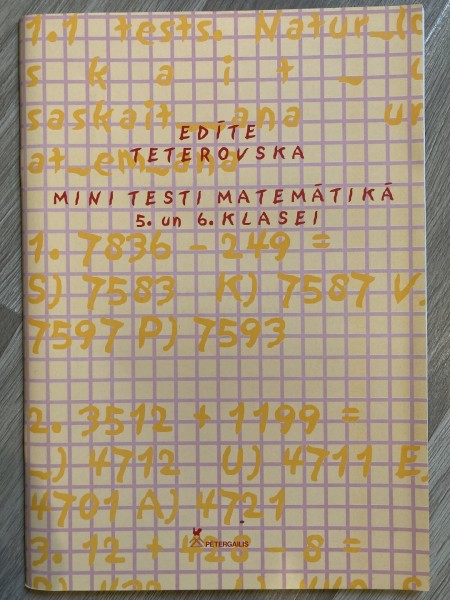 1.1 tests. Natur_(o
s k a i t _ u
saskait__ana un
EDĪTE
at_em_ana
TETEROVSKA
MINI TESTI MATEMĀTIKĀ
5. un 6. KLASEI
1. 7836 - 249 =
S) 7583 K) 7587 V.
7597 P) 7593
2. 3512 + 1199 =
_) 4712 U) 4711 E.
4701 A) 4721
3. 12 + 428 - 8 =
PĒTERGAILIS